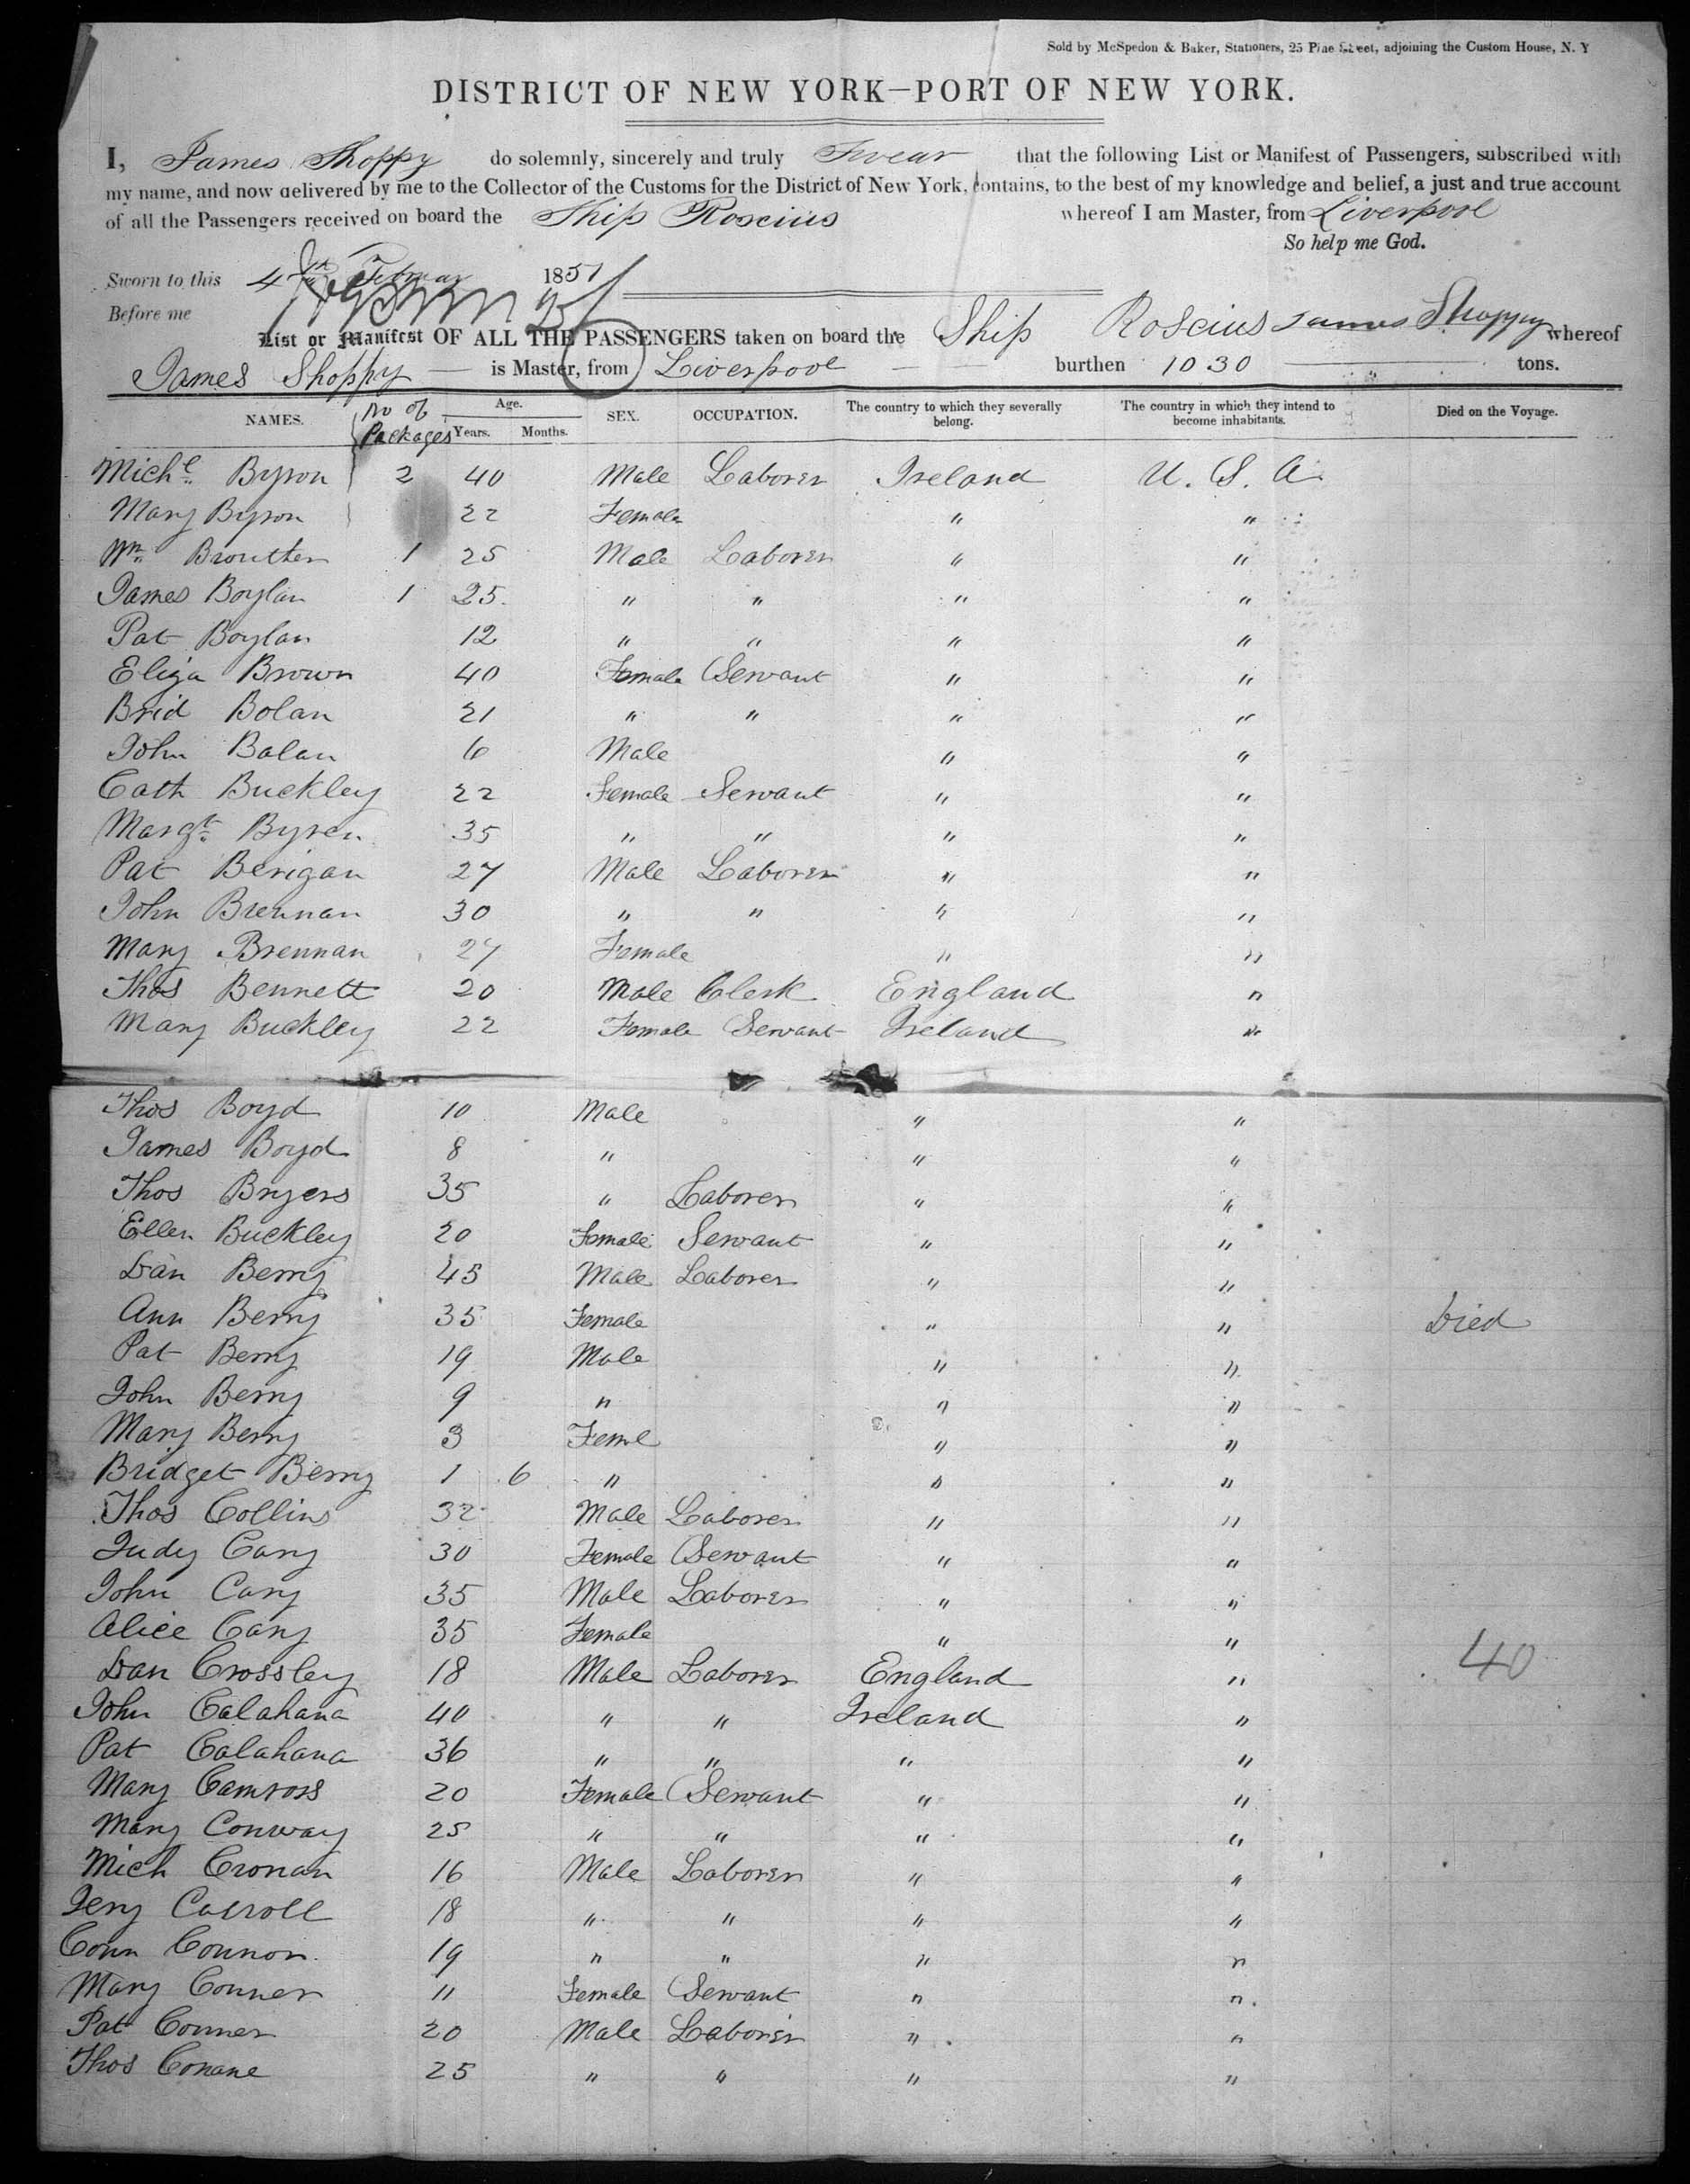 Sold by McSpedon & Baker, Stationers, 25 Pine Street, adjoining the Custom House, N. Y
DISTRICT OF NEW YORK—PORT OF NEW YORK.
I, James Shoppy do solemnly, sincerely and truly Swear that the following List or Manifest of Passengers, subscribed with
my name, and now delivered by me to the Collector of the Customs for the District of New York, contains, to the best of my knowledge and belief, a just and true account
of all the Passengers received on board the Ship Roscius whereof I am Master, from Liverpool
So help me God.
Sworn to this 4th 1851
Before me
List or Manifest OF ALL THE PASSENGERS taken on board the Ship Roscius James Shoppy whereof
James Shoppy is Master, from Liverpool burthen 1030 tons.
NAMES. No of Packages Age. Years. Months. SEX. OCCUPATION. The country to which they severally belong. The country in which they intend to become inhabitants. Died on the Voyage.
Michl Byron 2 40 Male Laborer Ireland U. S. A.
Mary Byron 22 Female " "
Wm Brouther 1 25 Male Laborer " "
James Boylan 1 25 " " " "
Pat Boylan 12 " " " "
Eliza Brown 40 Female Servant " "
Brid Bolan 21 " " " "
John Bolan 6 Male " "
Cath Buckley 22 Female Servant " "
Margt Byren 35 " " " "
Pat Berigan 27 Male Laborer " "
John Brennan 30 " " " "
Mary Brennan 27 Female " "
Thos Bennett 20 Male Clerk England "
Mary Buckley 22 Female Servant Ireland "
Thos Boyd 10 Male " "
James Boyd 8 " " "
Thos Bryers 35 " Laborer " "
Ellen Buckley 20 Female Servant " "
Dan Berry 45 Male Laborer " "
Ann Berry 35 Female " " Died
Pat Berry 19 Male " "
John Berry 9 " " "
Mary Berry 3 Feml " "
Bridget Berry 1 6 " " "
Thos Collins 32 Male Laborer " "
Judy Cary 30 Female Servant " "
John Cary 35 Male Laborer " "
Alice Cary 35 Female " "
Dan Crossley 18 Male Laborer England " 40
John Calahana 40 " " Ireland "
Pat Calahana 36 " " " "
Mary Camross 20 Female Servant " "
Mary Conway 25 " " " "
Mich Cronan 16 Male Laborer " "
Jery Carroll 18 " " " "
Conn Connon 19 " " " "
Mary Conner 11 Female Servant " "
Pat Conner 20 Male Laborer " "
Thos Conane 25 " " " "